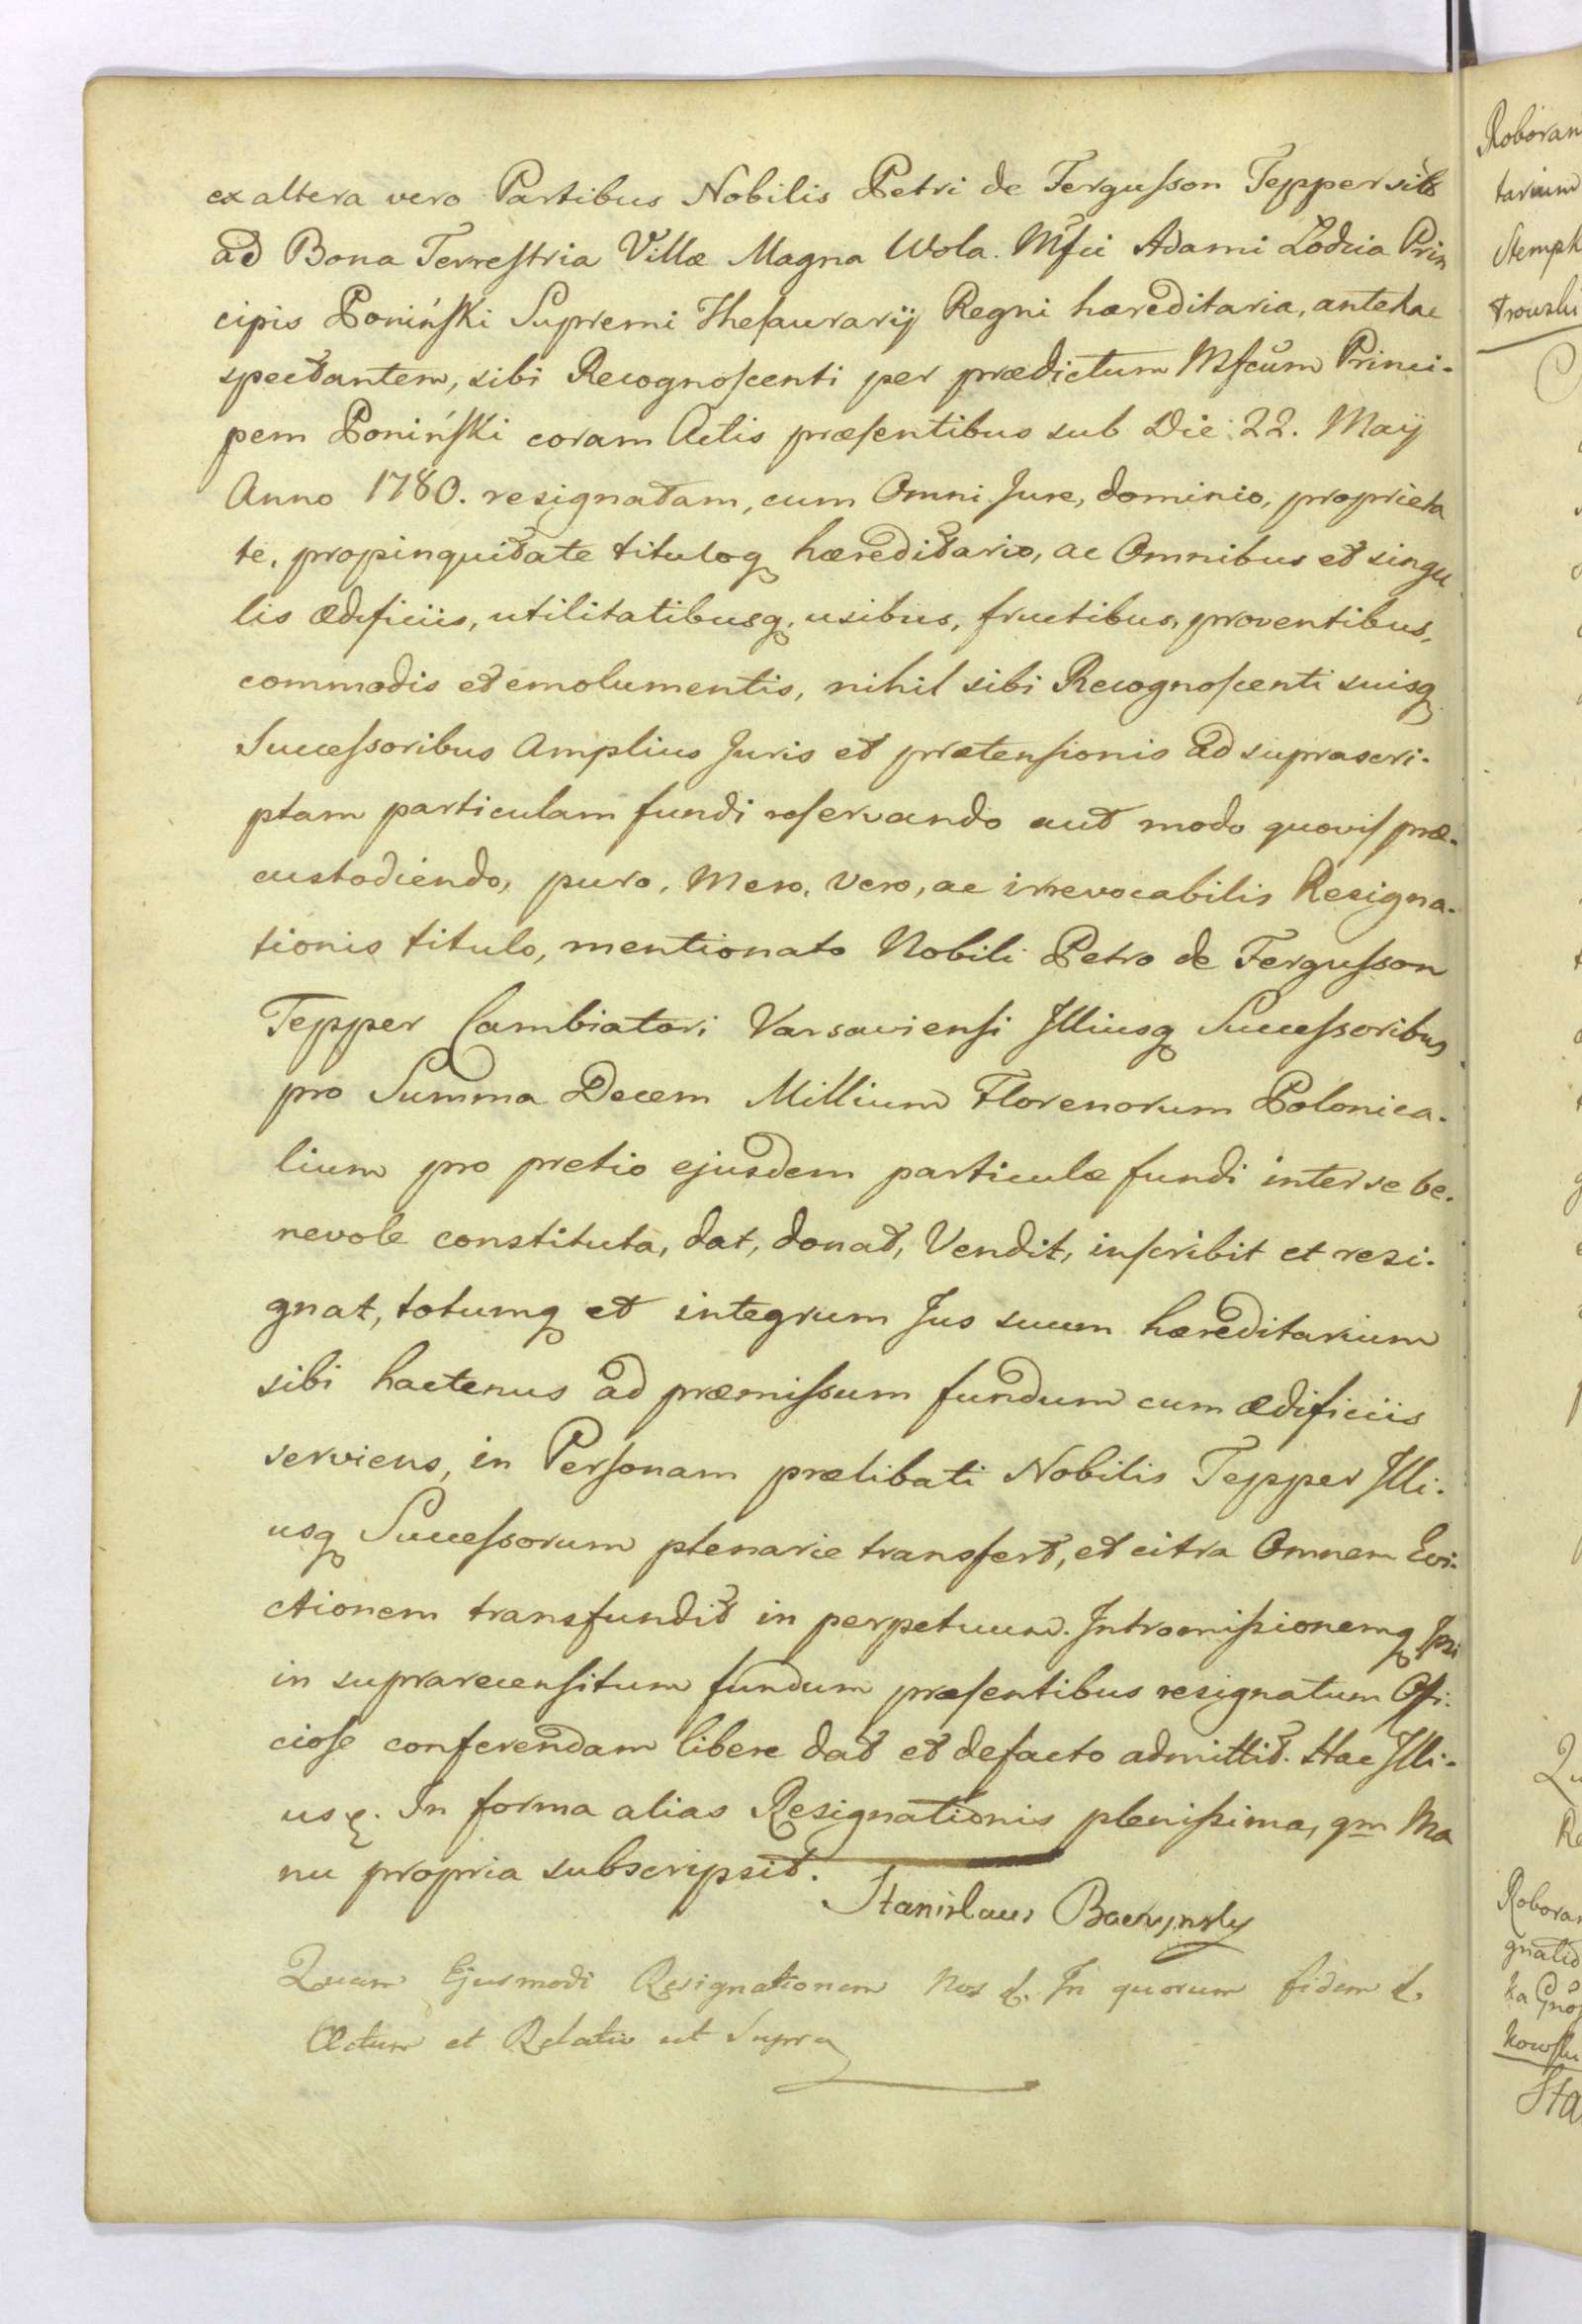 ex altera vero Partibus Nobilis Petri de Fergusson Tepper sitis
ad Bona Terrestria Villæ Magna Wola. Mfci Adami Łodzia Prin
cipis Poninski Supremi Thesaurarij Regni hæreditaria, antehac
spectantem, sibi Recognoscenti per prædictum Mfcum Princi-
pem Poniński coram Actis præsentibus sub Die 22. Maij
Anno 1780. resignatam, cum Omni Jure, dominio, proprieta
te, propinquitate tituloq hæreditario, ac Omnibus et singu
lis ædificiis, utilitatibusq. usibus, fructibus, proventibus,
commodis et emolumentis, nihil sibi Recognoscenti suisq
Successoribus Amplius Juris et prætensionis ad suprascri-
ptam particulam fundi reservando aut modo quovis præ-
custodiendo, puro, Mero, Vero, ac irrevocabilis Resigna-
tionis titulo, mentionato Nobili Petro de Fergusson
Tepper Cambiatori Varsaviensi Illiusq Successoribus
pro Summa Decem Millium Florenorum Polonica-
lium pro pretio ejusdem particulæ fundi inter se be-
nevole constituta, dat, donat, Vendit, inscribit et resi-
gnat, totumq et integrum Jus suum hæreditarium
sibi hactenus ad præmissum fundum cum ædificiis
serviens, in Personam prælibati Nobilis Tepper Illi-
usq Successorum plenarie transfert, et citra Omnem Evi-
ctionem transfundit in perpetuum. Intromissionemq Ipsi
in suprarecensitum fundum præsentibus resignatum Offi-
ciose conferendam libere dat et defacto admittit. Hac Illi-
us &. In forma alias Resignationis plenissima, qm Ma
nu propria subscripsit.
Stanislaus Baczynsky
Quam Ejusmodi Resignationem Nos &. In quorum fidem &.
Actum et Relatio ut Supra
Roboran
tarium
Stempk
trowski
Robora
gnatio
ka Gnos
kowski
Sta